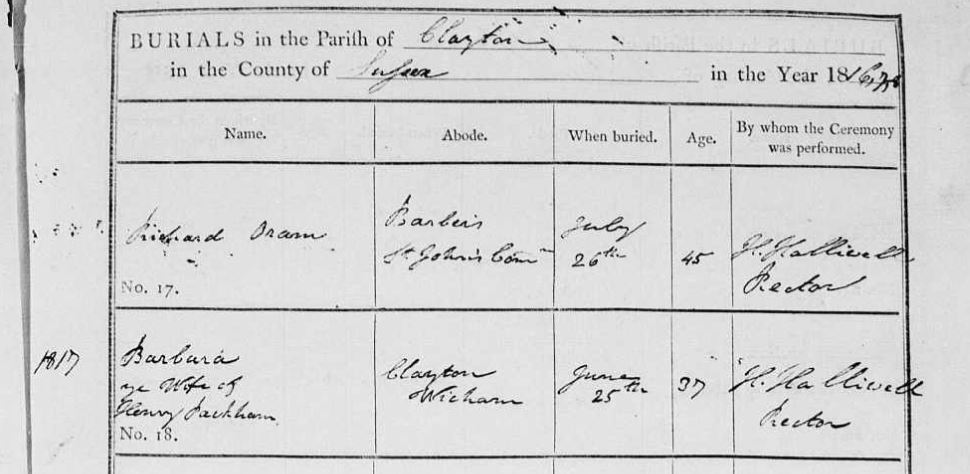 BURIALS in the Parish of Clayton
in the County of Sussex in the Year 1816,7,8
Name. Abode. When buried. Age. By whom the Ceremony was performed.
Richard Oram
Barbers
St. John's Com
July
26th
45
H. Halliwell
Rector
No. 17.
1817
Barbara
ye Wife of
Henry Packham
Clayton
Wickham
June
25th
37
H. Halliwell
Rector
No. 18.